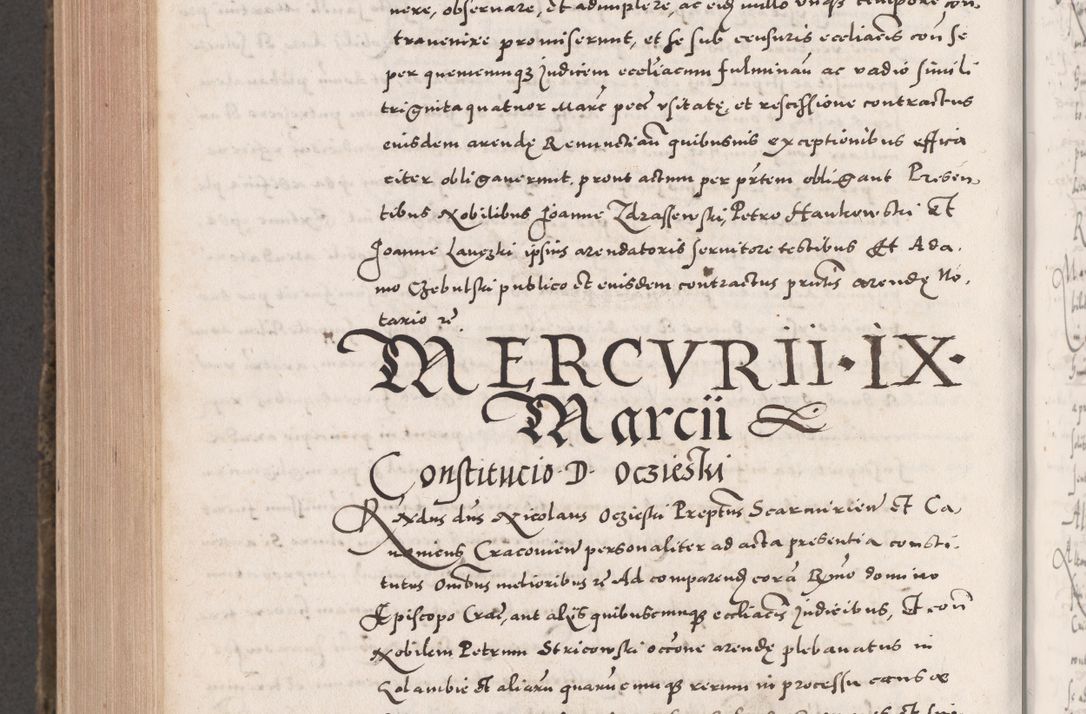 nere, observare, et adimplere, ac eisdem nullo unquam tempore con,
travenire promiserunt, et se sub censuris eccliacis con se
per quemcunqз Iudicem eccliacum fulminan ac vadio simili
trigintaquatuor Marc pece usitatę, et rescissione contractus
eiusdem arendę Renunctian quibusvis exceptionibus effica
citer obligaverunt. prout actum per prtem obligant Presen,
tibus Nobilibus Joanne Zdrassewski, Petro Hankowski Et
Joanne Lanczki ipsius arendatoris servitore testibus Et Ada,
mo Czebulski publico et eiusdem contractus prntis arendę No,
tario rc
MERCVRII · IX ·
Marcii
Constitucio · D · Oczieski
Rndus dns Nicolaus Oczieski Preptus Scarmirien Et Ca,
nonicus Cracovien personaliter ad acta presentia consti,
tutus Ombus melioribus rc Ad comparend corā Rmo domino
Episcopo Crac, aut aliis quibuscunqз eccliacis Iudicibus, Et con
Nobilem Petrum Stricowski occone arendę plebanatus in
Colambie Et aliaru quarucunqз rerum in processu caus